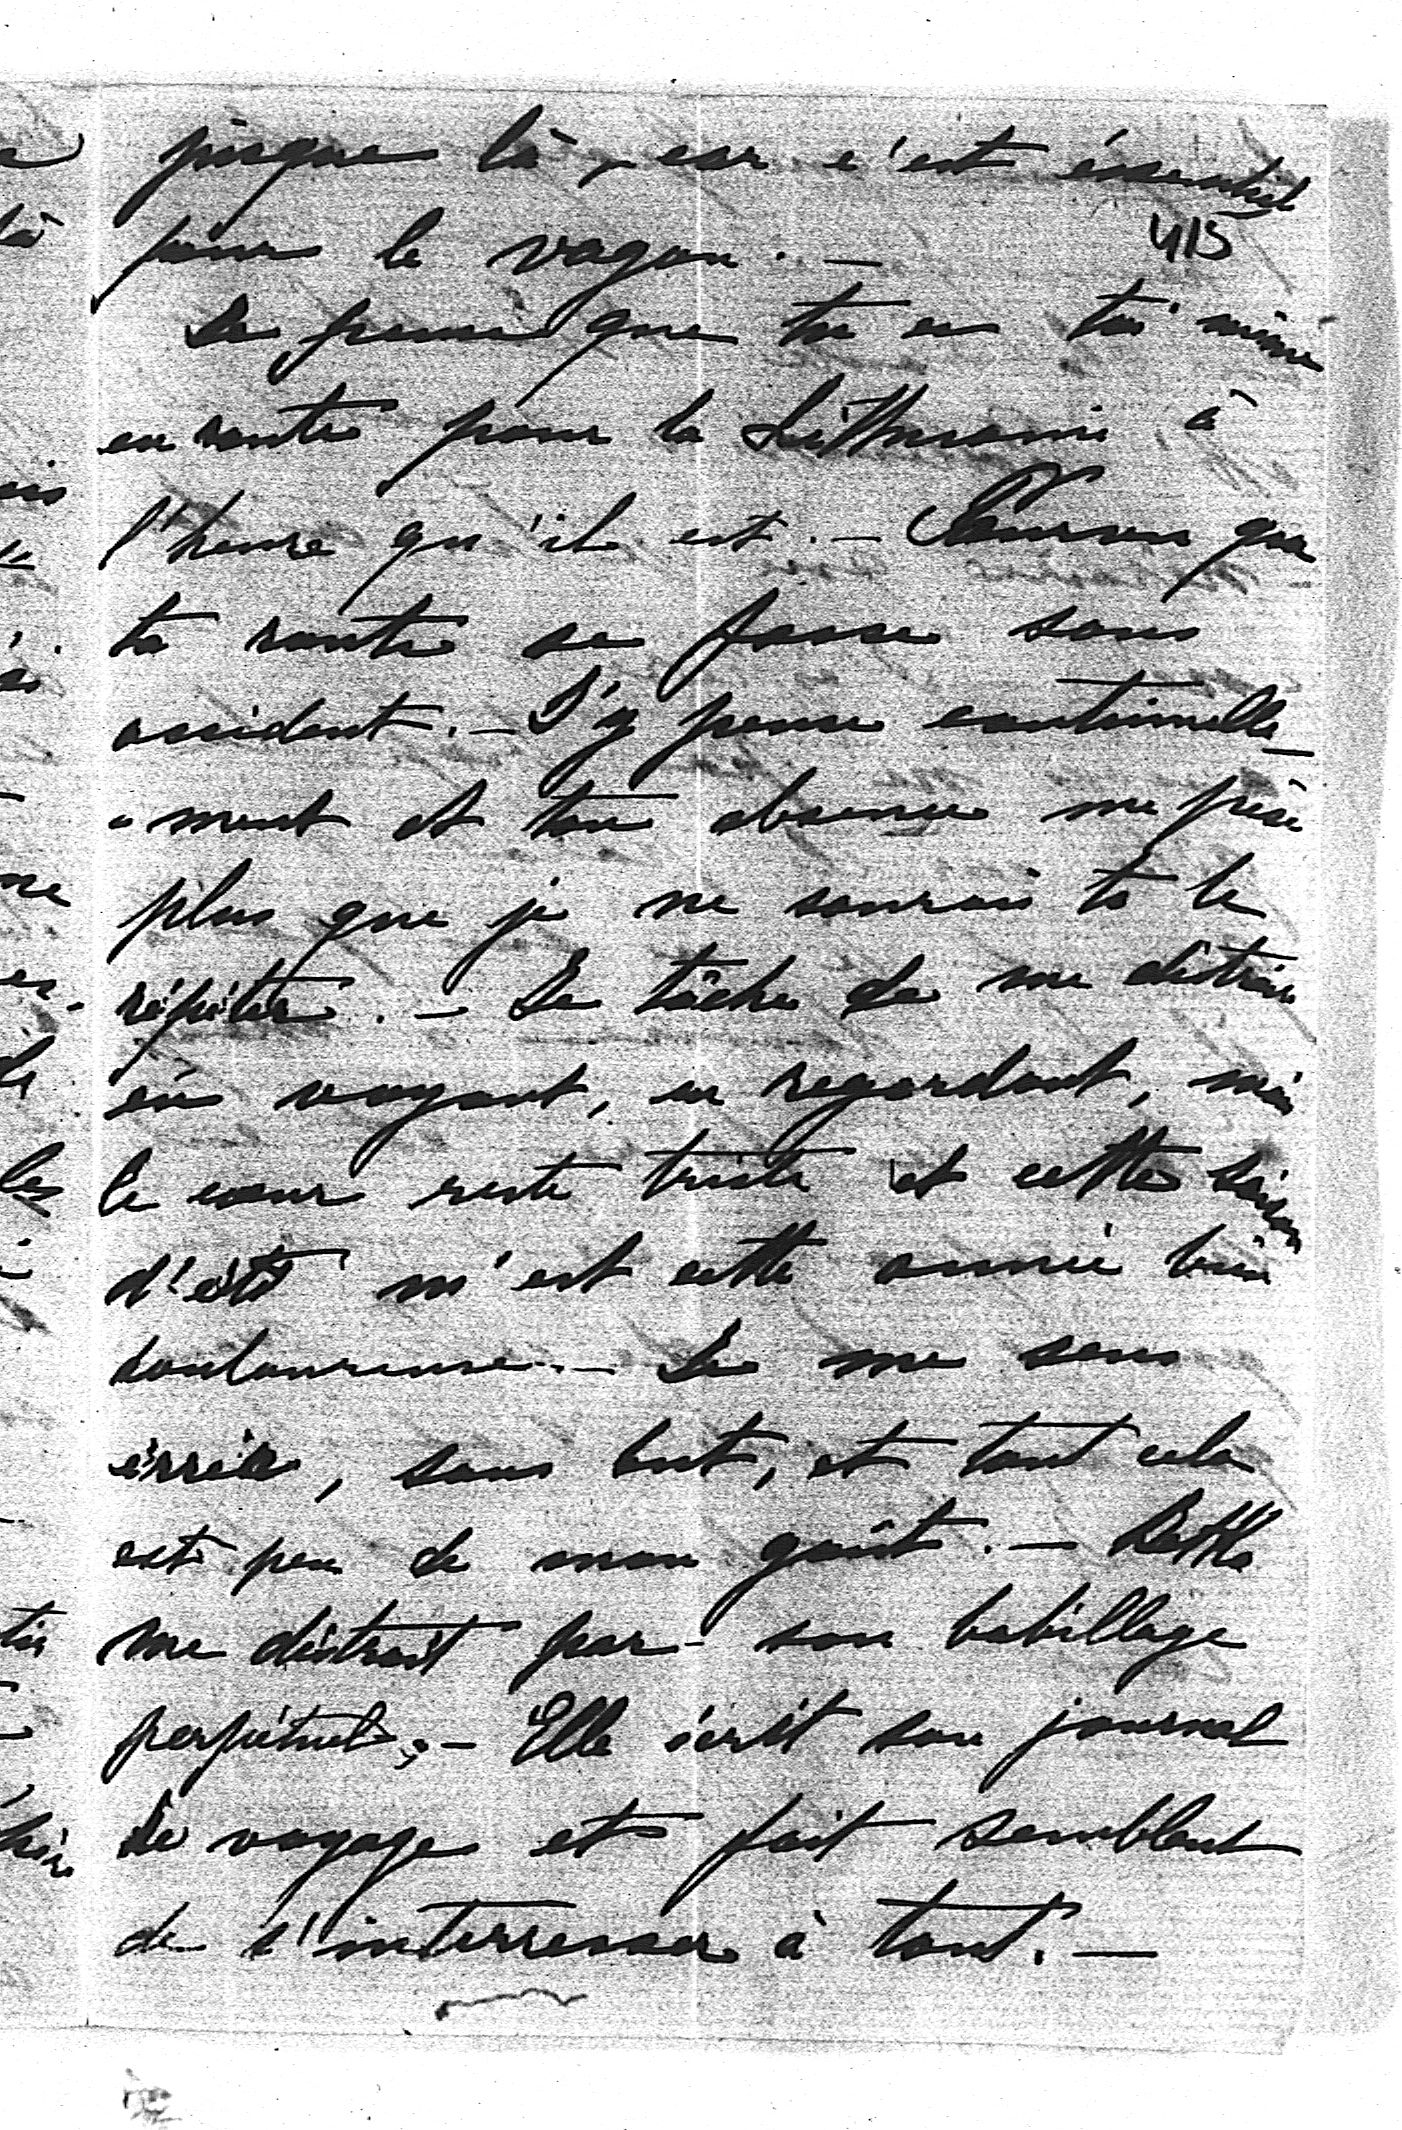 jusque là, car c'est éssentiel
415
pour le vagon. —
Je pense que tu es toi même
en route pour la Lithuanie à
l'heure qu'il est. — Pourvu que
ta route se fasse sans
assident. — J'y pense continuelle_
ment et ton absence me pèse
plus que je ne saurais te le
répéter. — Je tâche de me distraire
en voyant, en regardant, mais
le cœur reste triste et cette saison
d'été m'est cette année bien
douloureuse. — Je me sens
sans but, et tout cela
est peu de mon goût. —
me distrait par son babillage
perpétuel; — Elle écrit son journal
de voyage et fait semblant
de s'interresser à tout. —